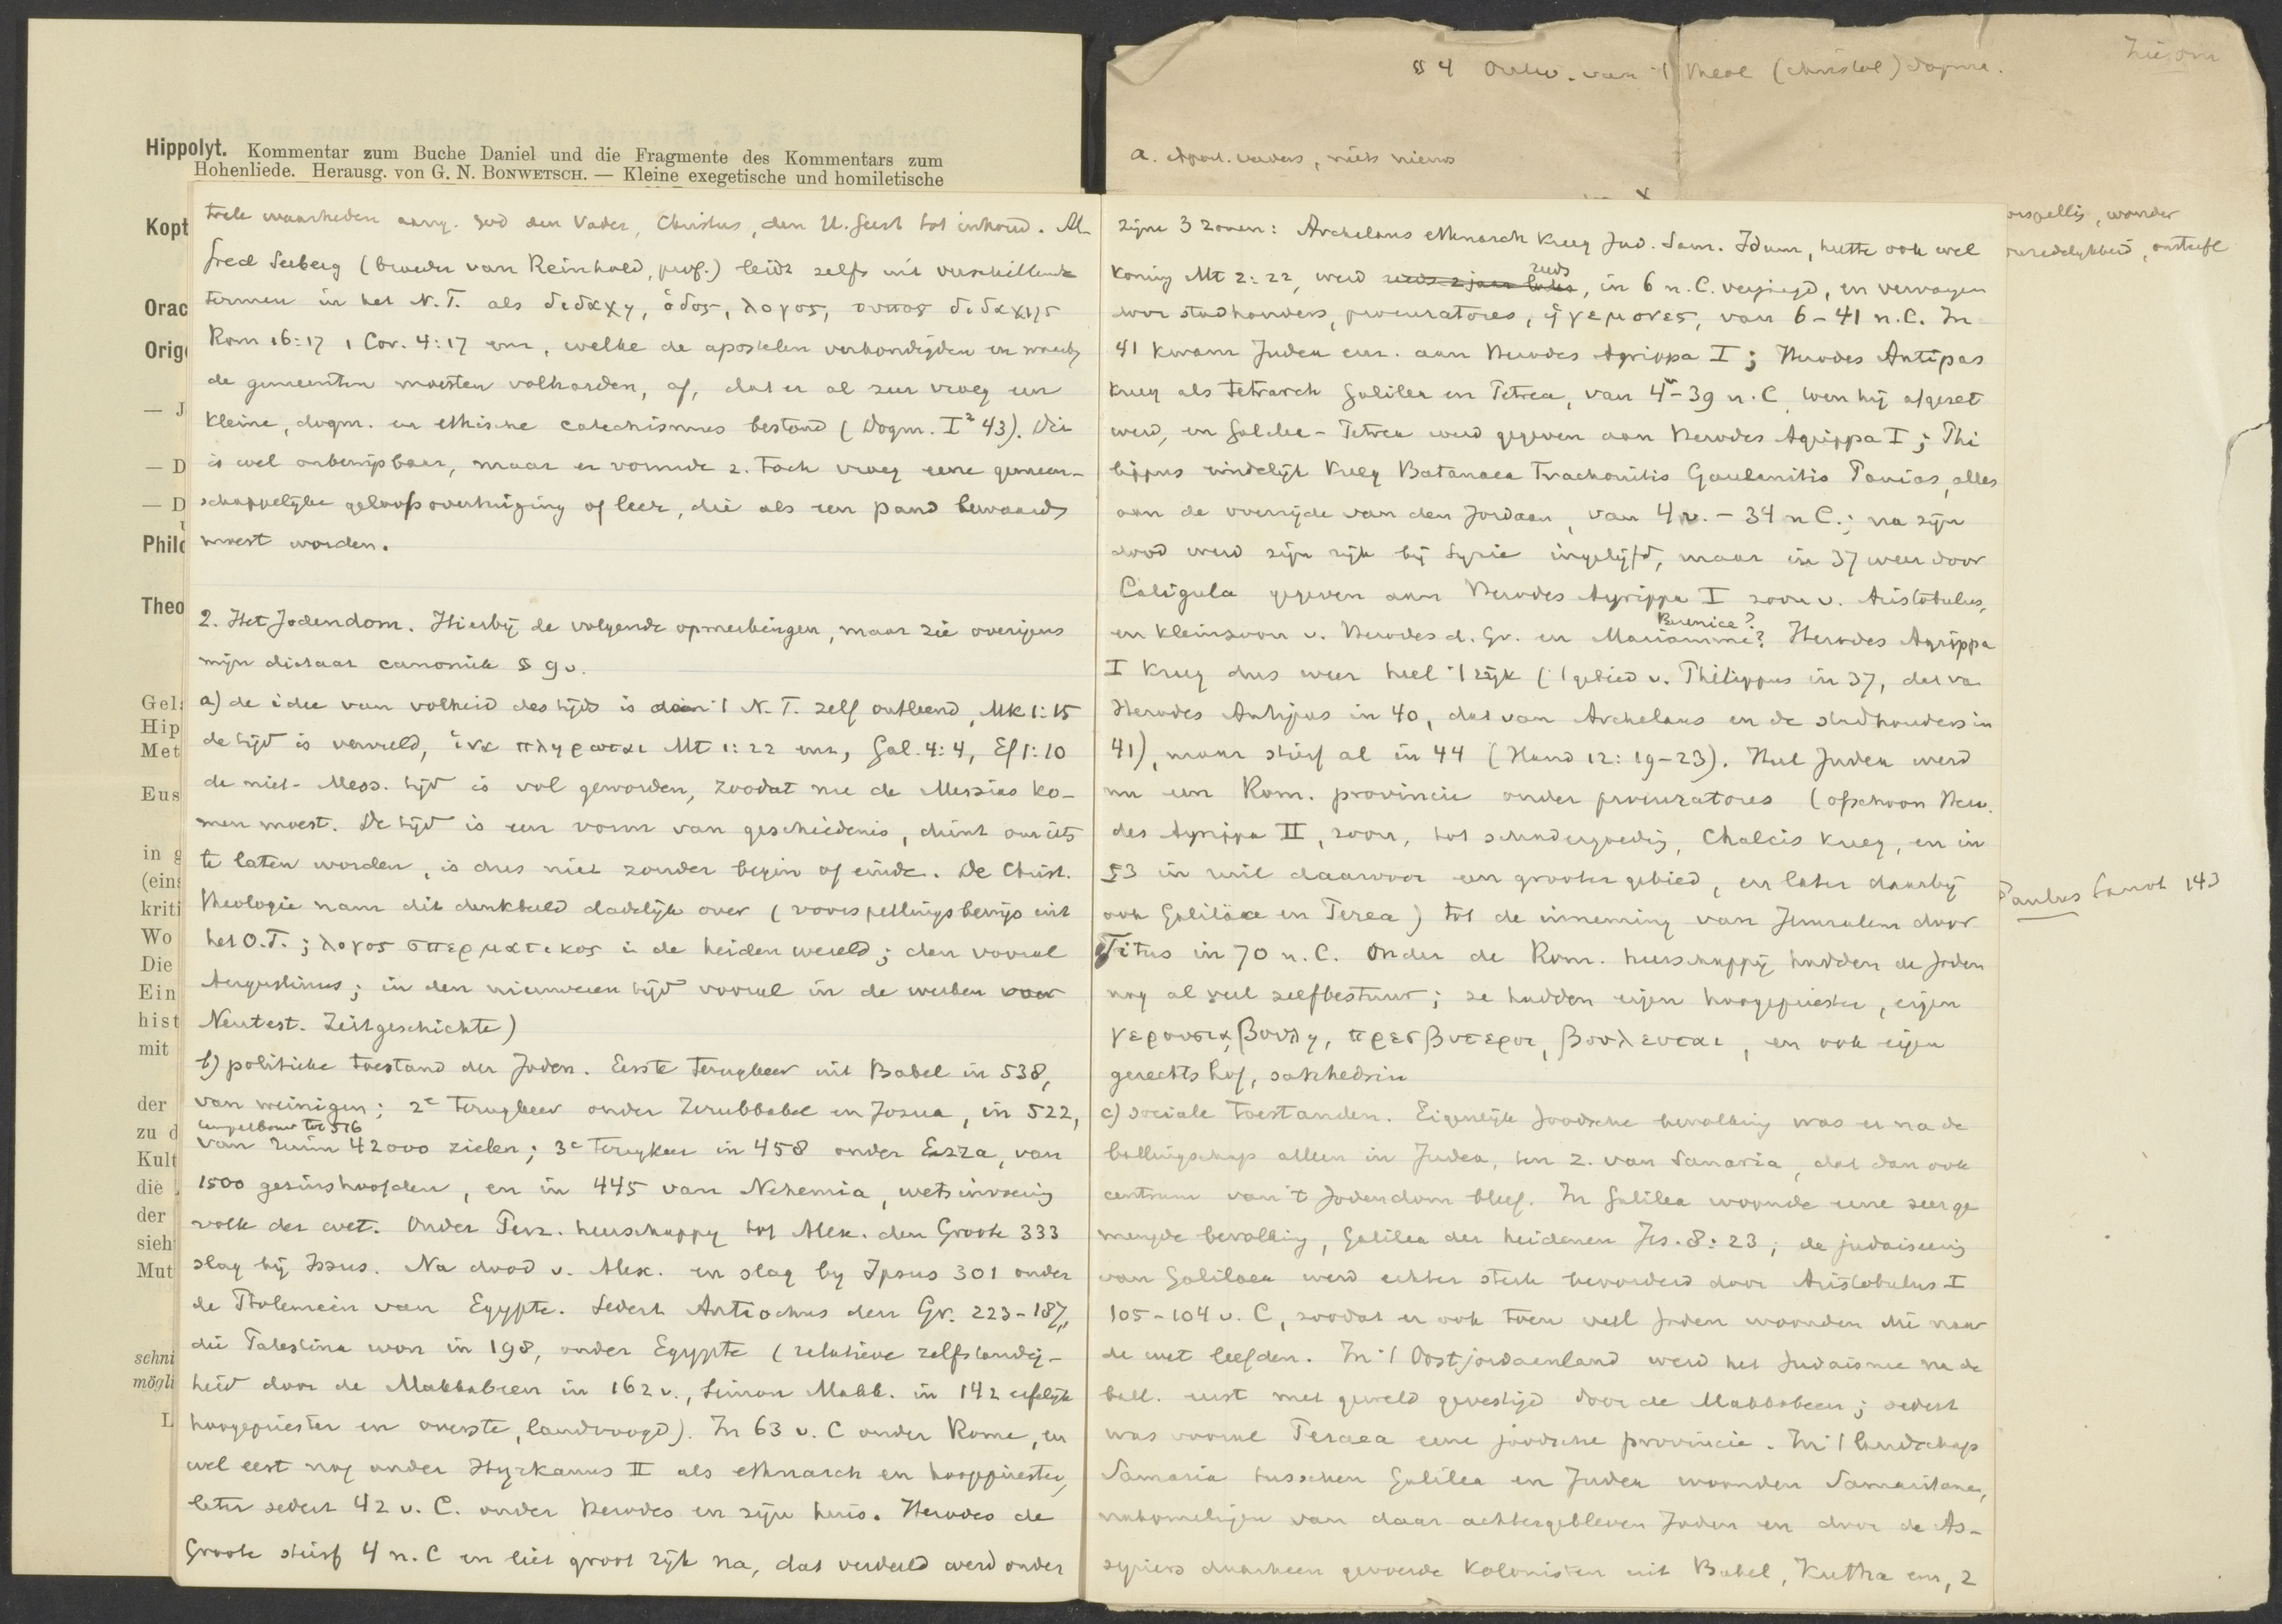 Hippolyt. Kommentar zum Buche Daniel und die Fragmente des Kommentars zum
Hohenliede. Herausg. von G. N. BONWETSCH. — Kleine exegetische und homiletische
Kopt
Orac
Orig
— J
— D
— D
Philo
Theo
Gel
Hip
Met
Eus
in g
(eins
kriti
Wo
Die
Ein
hist
mit
der
zu d
Kult
die
der
sieh
Mut
schni
mögli
L
trale waarheden aang. God den Vader, Christus, den H. Geest tot inhoud. Al-
fred Seeberg (broeder van Reinhold, prof.) leidt zelfs uit verschillende
termen in het N.T. als διδαχη, ὁδος, λογος, τυπος διδαχης
Rom 16:17 1 Cor. 4:17 enz, welke de apostelen verkondigden en waarbij
de gemeenten moesten volharden, af, dat er al zeer vroeg een
kleine, dogm. en ethische catechismus bestond (Dogm. I² 43). Dit
is wel onbewijsbaar, maar er vormde z. toch vroeg eene gemeen-
schappelijke geloofsovertuiging of leer, die als een pand bewaard
moest worden.
2. Het Jodendom. Hierbij de volgende opmerkingen, maar zie overigens
mijn dictaat canoniek § 9v.
a) de idee van volheid des tijds is aan 't N.T. zelf ontleend, Mk 1:15
de tijd is vervuld, ἱνα πληρωται Mt 1:22 enz, Gal. 4:4, Ef 1:10
de niet-Mess. tijd is vol geworden, zoodat nu de Messias ko-
men moest. De tijd is een vorm van geschiedenis, dient om iets
te laten worden, is dus niet zonder begin of einde. De Christ.
theologie nam dit denkbeeld dadelijk over (voorspellingsbewijs uit
het O.T.; λογος σπερματικος in de heidenwereld; dan vooral
Augustinus; in den nieuweren tijd vooral in de werken over
Neutest. Zeitgeschichte)
b) politieke toestand der Joden. Eerste terugkeer uit Babel in 538,
van weinigen; 2e terugkeer onder Zerubbabel en Jozua, in 522,
tempelbouw tot 516
van ruim 42000 zielen; 3e terugkeer in 458 onder Ezra, van
1500 gezinshoofden, en in 445 van Nehemia, wetsinvoering
volk der wet. Onder Perz. heerschappij tot Alex. den Groote 333
slag bij Issus. Na dood v. Alex. en slag by Ipsus 301 onder
de Ptolemeën van Egypte. Sedert Antiochus den Gr. 223-187,
die Palestina won in 198, onder Egypte (relatieve zelfstandig-
heid door de Makkabeën in 162 v., Simon Makk. in 142 erfelijk
hoogepriester en overste, landvoogd). In 63 v. C onder Rome, en
wel eerst nog onder Hyrkanus II als ethnarch en hoogepriester,
later sedert 42 v. C. onder Herodes en zijn huis. Herodes de
Groote stierf 4 n. C en liet groot rijk na, dat verdeeld werd onder
§ 4 Ontw. van 't theol (christol) dogma.
Zie om
a. Apost. vaders, niets nieuws
Paulus Landt 143
zijne 3 zonen: Archelaus ethnarch kreeg Jud. Sam. Idum, hette ook wel
koning Mt 2:22, werd reeds 2 jaar later reeds, in 6 n. C. verjaagd, en vervangen
door stadhouders, procuratores, ἡγεμονες, van 6-41 n. C. In
41 kwam Judea enz. aan Herodes Agrippa I; Herodes Antipas
kreeg als tetrarch Galilea en Perea, van 4v-39 n. C. toen hij afgezet
werd, en Galilea-Perea werd gegeven aan Herodes Agrippa I; Phi
lippus eindelijk kreeg Batanaea Trachonitis Gaulanitis Panias, alles
aan de overzijde van den Jordaan, van 4 v. - 34 n C.; na zijn
dood werd zijn rijk bij Syrie ingelijfd, maar in 37 weer door
Caligula gegeven aan Herodes Agrippa I zoon v. Aristobulus,
Berenice?
en kleinzoon v. Herodes d. Gr. en Mariamme? Herodes Agrippa
I kreeg dus weer heel 't rijk ('t gebied v. Philippus in 37, dat van
Herodes Antipas in 40, dat van Archelaus en de stadhouders in
41), maar stierf al in 44 (Hand 12:19-23). Heel Judea werd
nu een Rom. provincie onder procuratores (ofschoon Hero-
des Agrippa II, zoon, tot schadevergoeding, Chalcis kreeg, en in
53 in ruil daarvoor een grooter gebied, en later daarbij
ook Galilaea en Perea) tot de inneming van Jeruzalem door
Titus in 70 n. C. Onder de Rom. heerschappij hadden de Joden
nog al veel zelfbestuur; ze hadden eigen hoogepriester, eigen
γερουσια, βουλη, πρεσβυτεροι, βουλευται, en ook eigen
gerechtshof, sanhedrin
c) sociale toestanden. Eigenlijk Joodsche bevolking was er na de
ballingschap alleen in Judea, ten z. van Samaria, dat dan ook
centrum van 't Jodendom bleef. In Galilea woonde eene zeer ge
mengde bevolking, Galilea der heidenen Jes. 8:23; de judaiseering
van Galilaea werd echter sterk bevorderd door Aristobulus I
105-104 v. C, zoodat er ook toen veel Joden woonden die naar
de wet leefden. In 't Oostjordaanland werd het Judaisme na de
ball. eerst met geweld gevestigd door de Makkabeen; sedert
was vooral Peraea eene joodsche provincie. In 't landschap
Samaria tusschen Galilea en Judea woonden Samaritanen,
nakomelingen van daar achtergebleven Joden en door de As-
syriers daarheen gevoerde kolonisten uit Babel, Kutha enz, 2